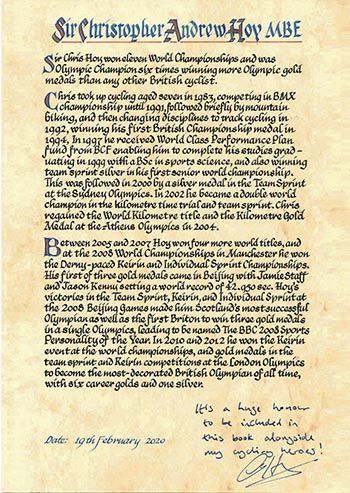 Sir Christopher Andrew Hoy MBE
Sir Chris Hoy won eleven World Championships and was
Olympic Champion six times winning more Olympic gold
medals than any other British cyclist.
Chris took up cycling aged seven in 1983, competing in BMX
championship until 1991, followed briefly by mountain
biking, and then changing disciplines to track cycling in
1992, winning his first British Championship medal in
1994. In 1997 he received World Class Performance Plan
fund from BCF enabling him to complete his studies grad-
uating in 1999 with a BSc in sports science, and also winning
team sprint silver in his first senior world championship.
This was followed in 2000 by a silver medal in the Team Sprint
at the Sydney Olympics. In 2002 he became a double world
champion in the kilometre time trial and team sprint. Chris
regained the World Kilometre title and the Kilometre Gold
Medal at the Athens Olympics in 2004.
Between 2005 and 2007 Hoy won four more world titles, and
at the 2008 World Championships in Manchester he won
the Derny-paced Keirin and Individual Sprint Championships.
His first of three gold medals came in Beijing with Jamie Staff
and Jason Kenny setting a world record of 42.950 sec. Hoy's
victories in the Team Sprint, Keirin, and Individual Sprint at
the 2008 Beijing Games made him Scotland's most successful
Olympian as well as the first Briton to win three gold medals
in a single Olympics, leading to being named The BBC 2008 Sports
Personality of the Year. In 2010 and 2012 he won the Keirin
event at the world championships, and gold medals in the
team sprint and Keirin competitions at the London Olympics
to become the most-decorated British Olympian of all time,
with six career golds and one silver.
It's a huge honour
to be included in
this book alongside
my cycling heroes!
Date: 19th February 2020